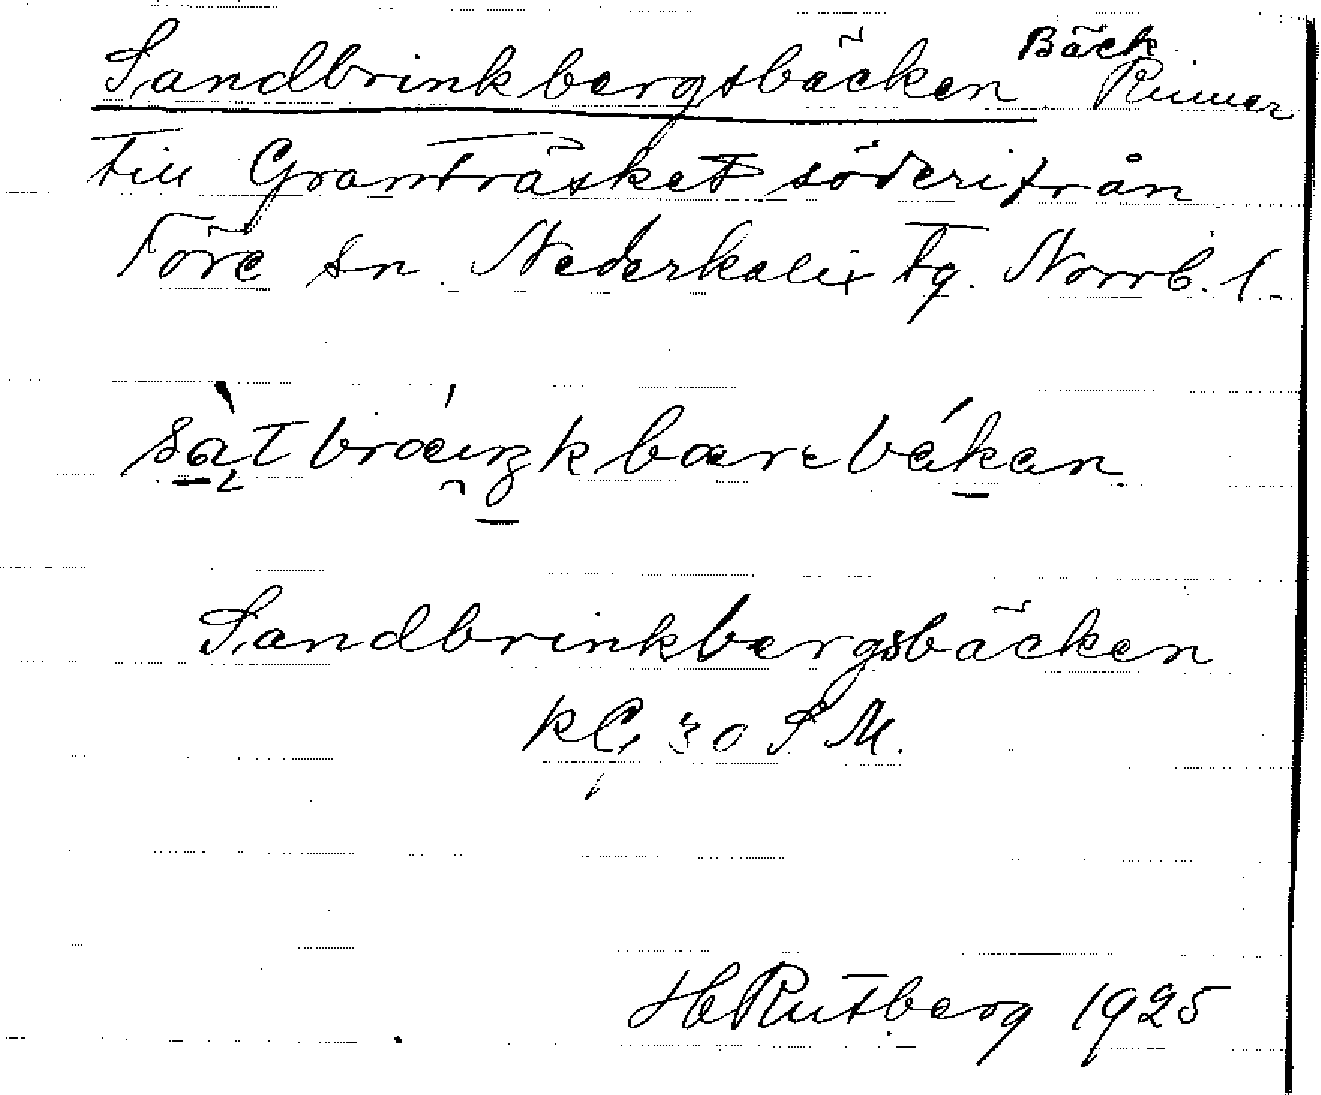 Sandbrinkbergsbäcken Bäck Rinner
till Granträsket söderifrån
Töre sn. Nederkalix tg. Norrb. l.
Sandbrinkbergsbäcken
kG, 30 S M.
H Rutberg 1925